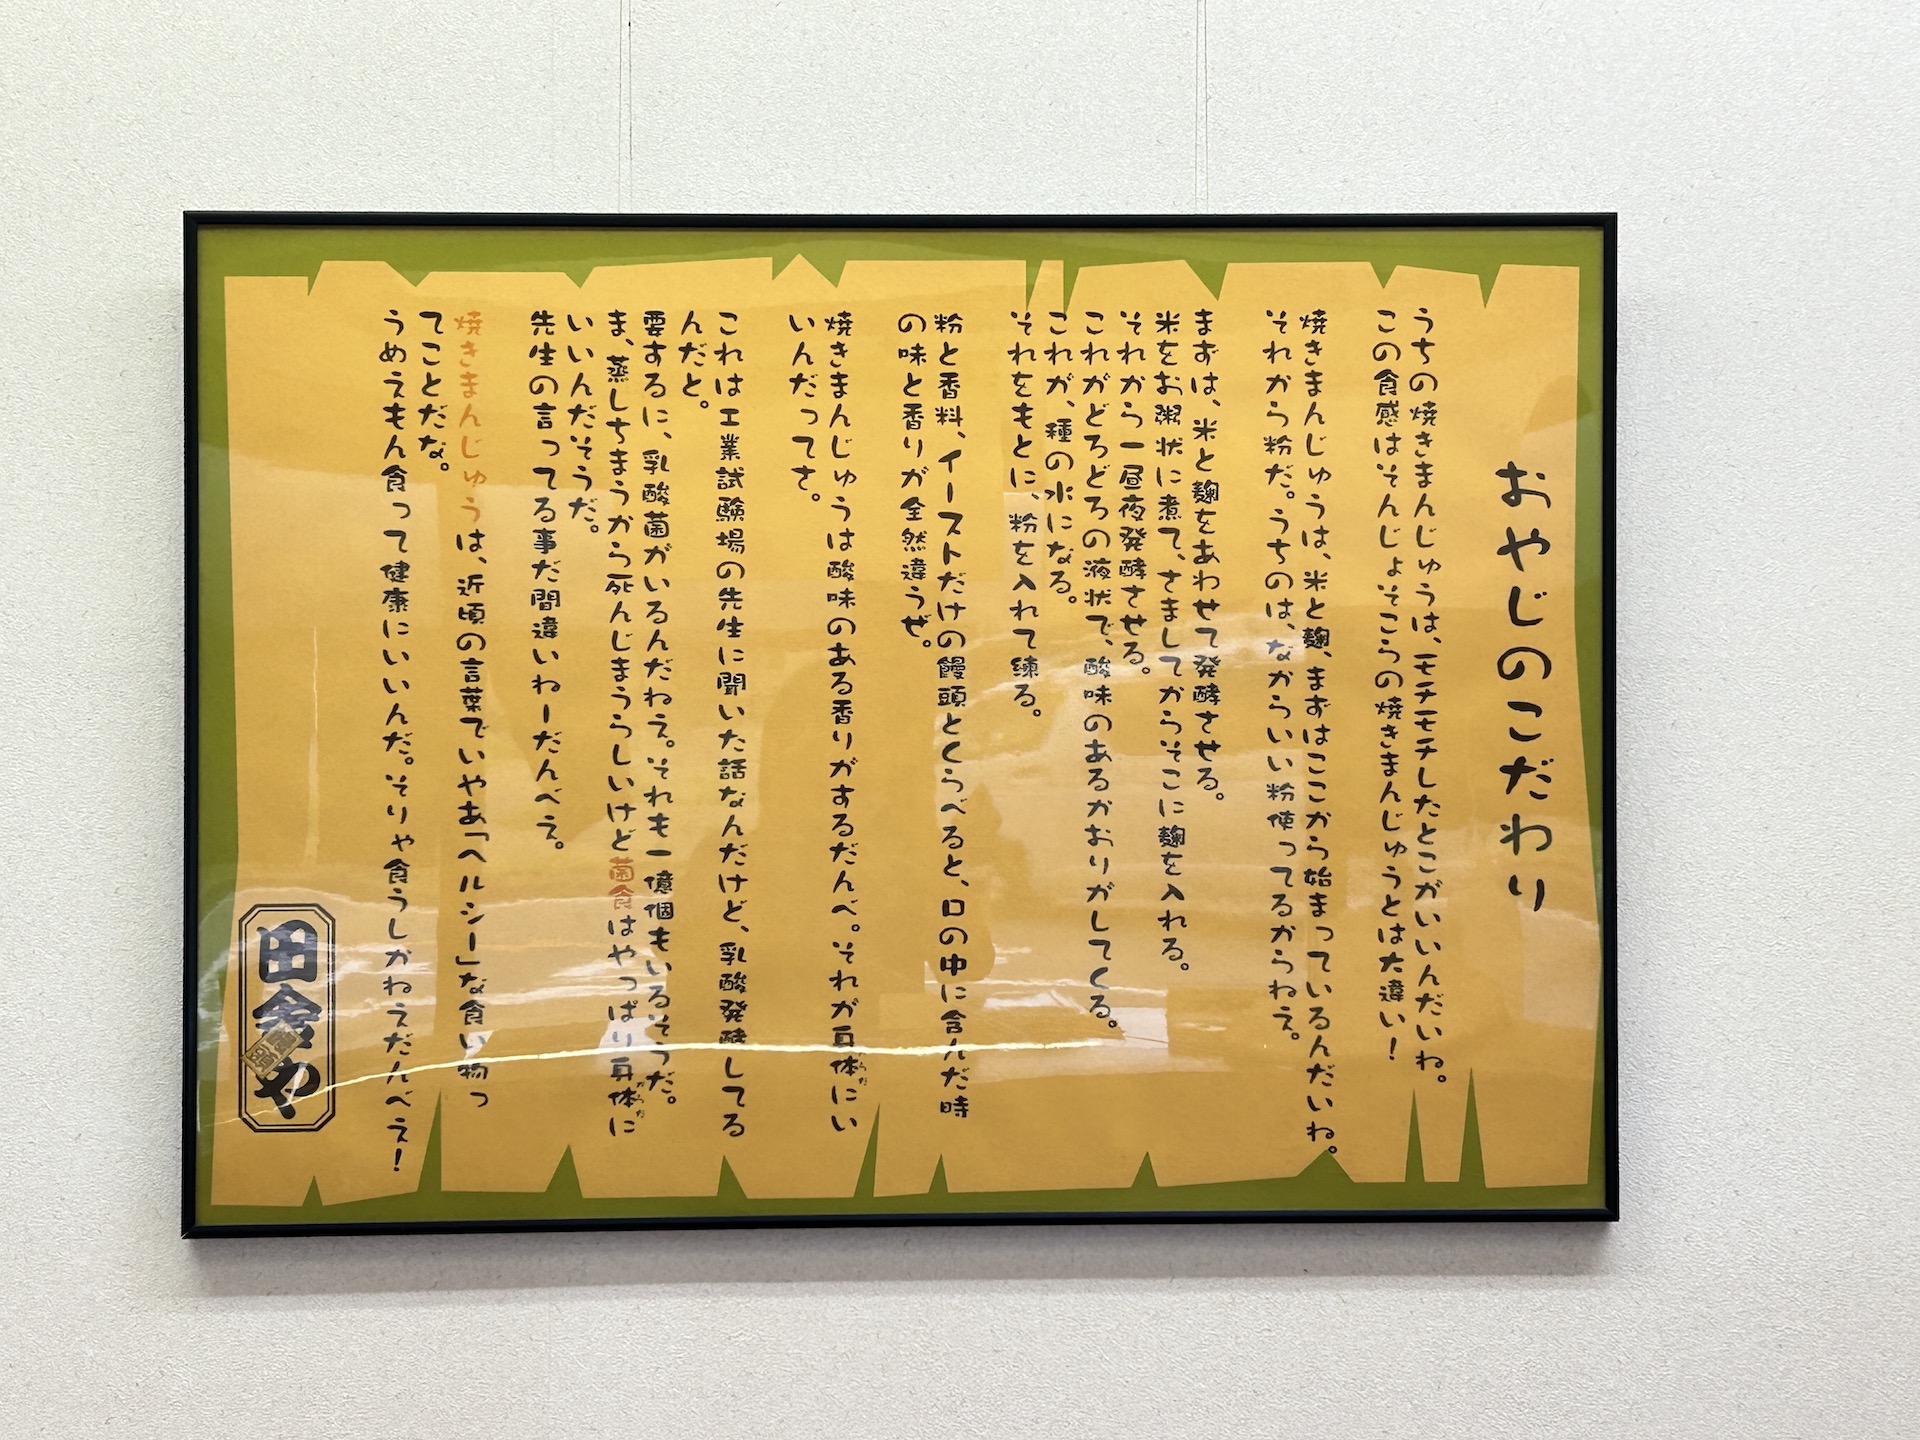 おやじのこだわり
うちの焼きまんじゅうは、モチモチしたとこがいいんだいね。
この食感はそんじょそこらの焼きまんじゅうとは大違い！
焼きまんじゅうは、米と麹、まずはここから始まっているんだいね。
それから粉だ。うちのは、ながらいい粉使ってるからねえ。
まずは、米と麹をあわせて発酵させる。
米をお粥状に煮て、さましてからそこに麹を入れる。
それから一昼夜発酵させる。
これがどろどろの液状で、酸味のあるかおりがしてくる。
これが、種の水になる。
それをもとに、粉を入れて練る。
粉と香料、イーストだけの饅頭とくらべると、口の中に含んだ時
の味と香りが全然違うぜ。
焼きまんじゅうは酸味のある香りがするだんべ。それが身体にい
いんだってさ。
からだ
これは工業試験場の先生に聞いた話なんだけど、乳酸発酵してる
んだと。
要するに、乳酸菌がいるんだねえ。それも一億個もいるそうだ。
ま、蒸しちまうから死んじまうらしいけど菌食はやっぱり身体に
からだ
いいんだそうだ。
先生の言ってる事だ間違いねーだんべえ。
焼きまんじゅうは、近頃の言葉でいやあ「ヘルシー」な食い物っ
てことだな。
うめえもん食って健康にいいんだ。そりゃ食うしかねえだんべえ！
田舎や